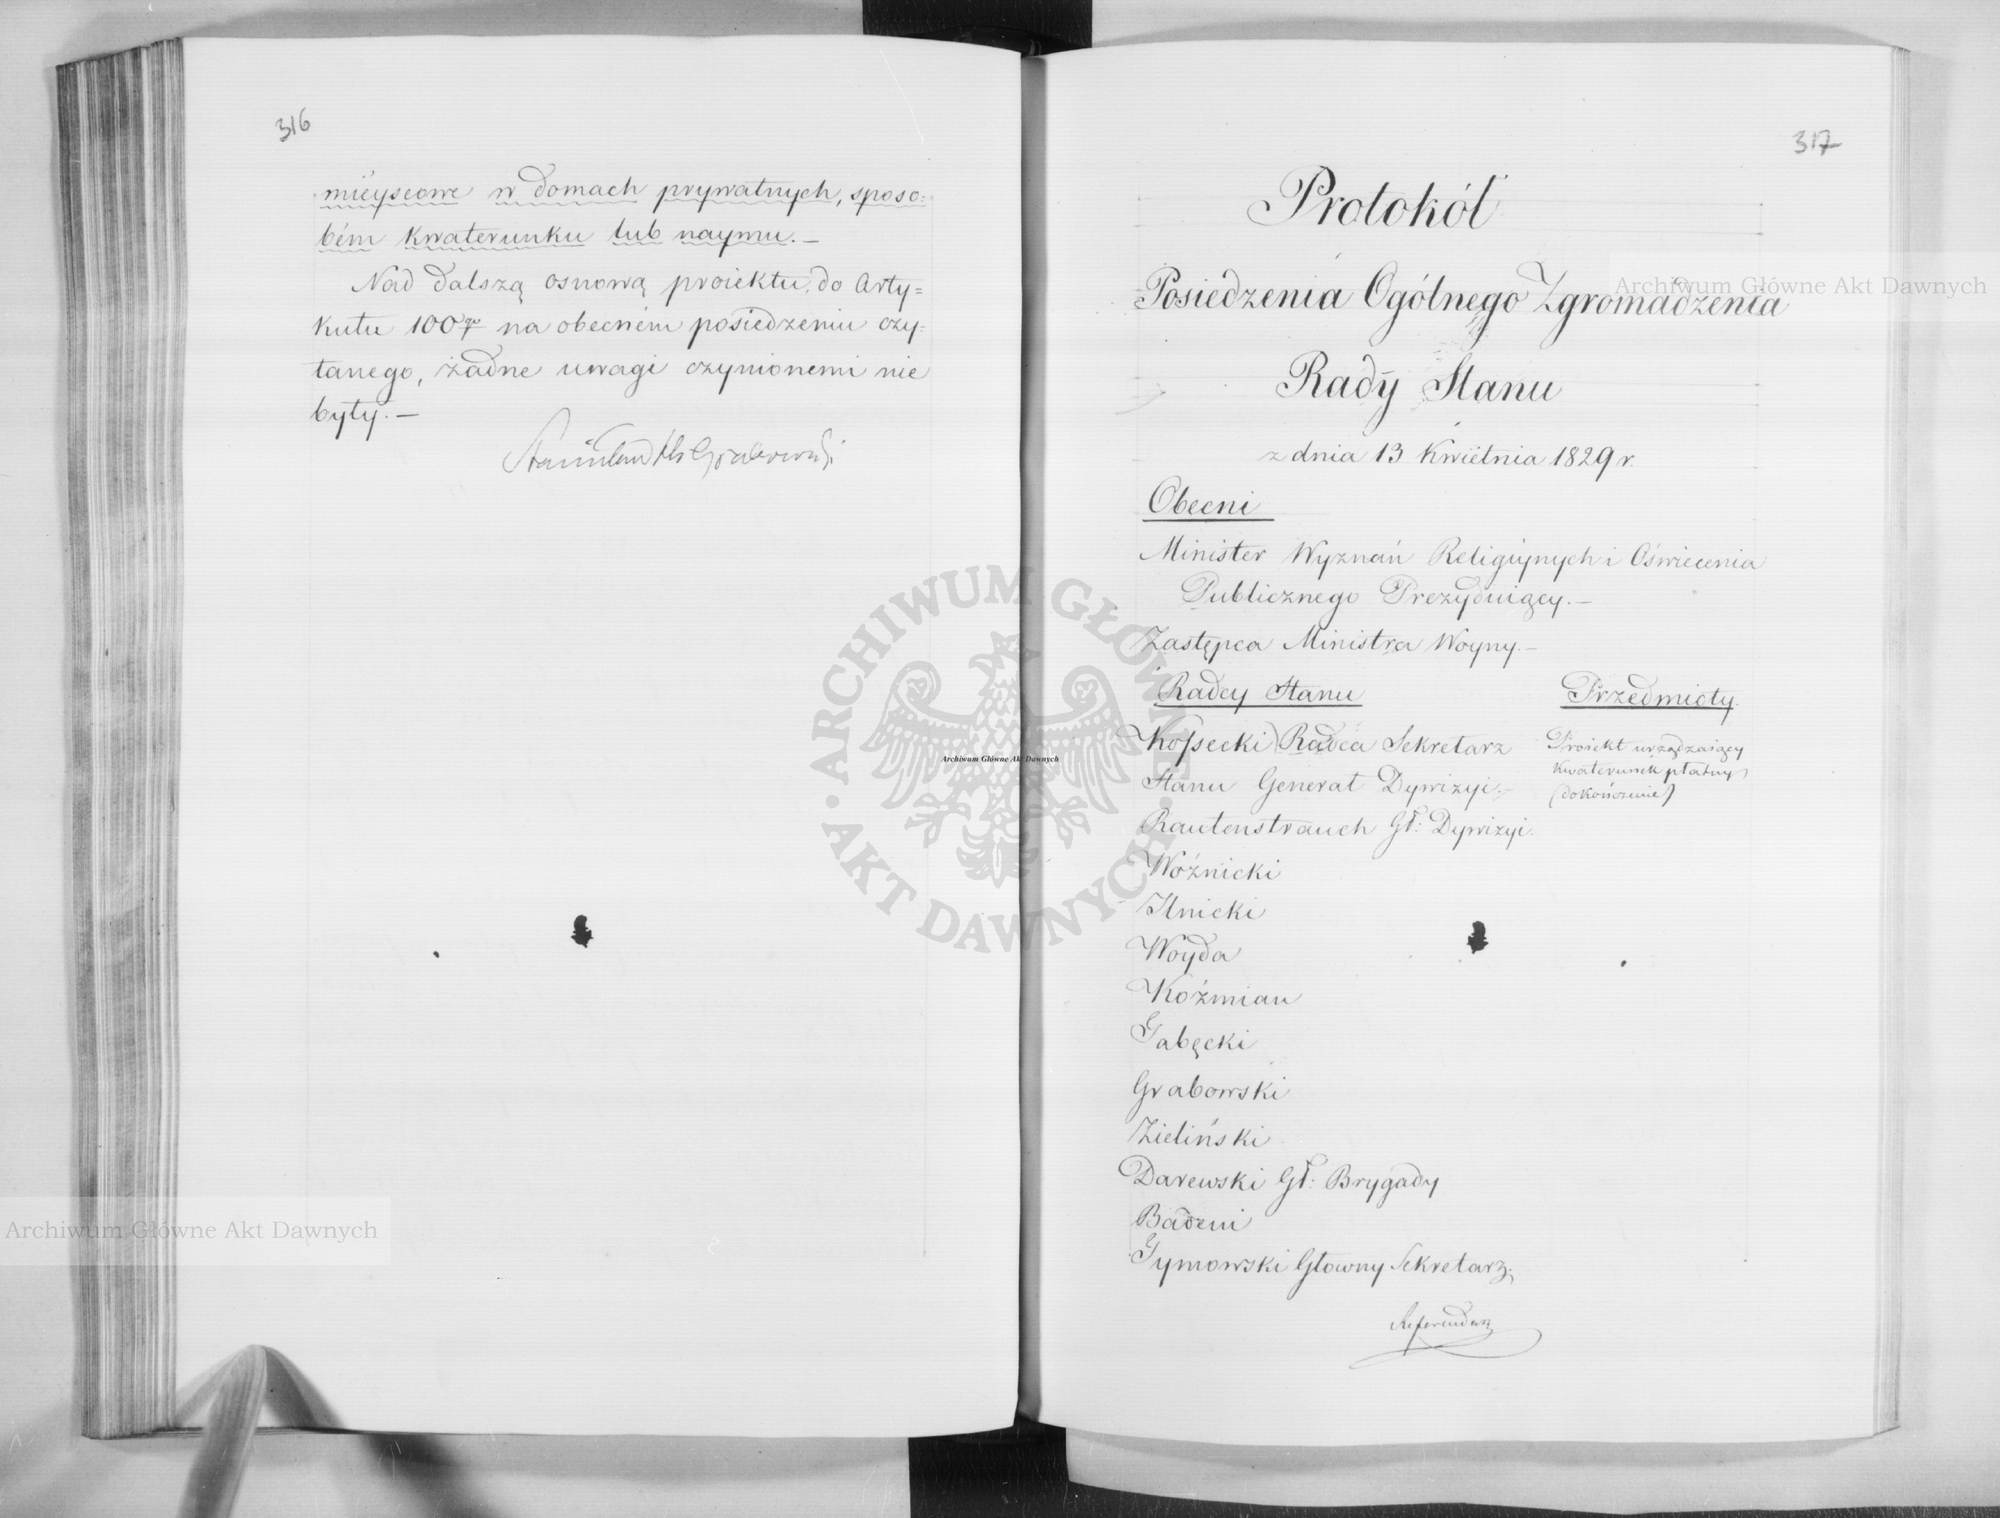 316
mieyscowe w domach prywatnych, sposo=
bém kwaterunku lub naymu.—
Nad dalszą osnową proiektu, do Arty=
kułu 100go na obecném posiedzeniu czy=
tanego, żadne uwagi czynionemi nie
były.—
Stanisław Hr Grabowski
317
Protokół
Posiedzenia Ogólnego Zgromadzenia
Rady Stanu
z dnia 13 Kwietnia 1829 r.
Obecni
Minister Wyznań Religiynych i Oświecenia
Publicznego Prezyduiący.—
Zastępca Ministra Woyny.—
Radcy Stanu
Kossecki Radca Sekretarz
Stanu Generał Dywizyi.—
Rautenstrauch Gł: Dywizyi.
Woźnicki
Ilnicki
Woyda
Koźmian
Gabęcki
Grabowski
Zieliński
Darewski Gł: Brygady
Badeni
Tymowski Głowny Sekretarz.
Przedmioty.
Proiekt urządzaiący
kwaterunek płatny
(dokończenie)
Referendarz
Archiwum Główne Akt Dawnych
Archiwum Główne Akt Dawnych
Archiwum Główne Akt Dawnych
ARCHIWUM GŁÓWNE
AKT DAWNYCH